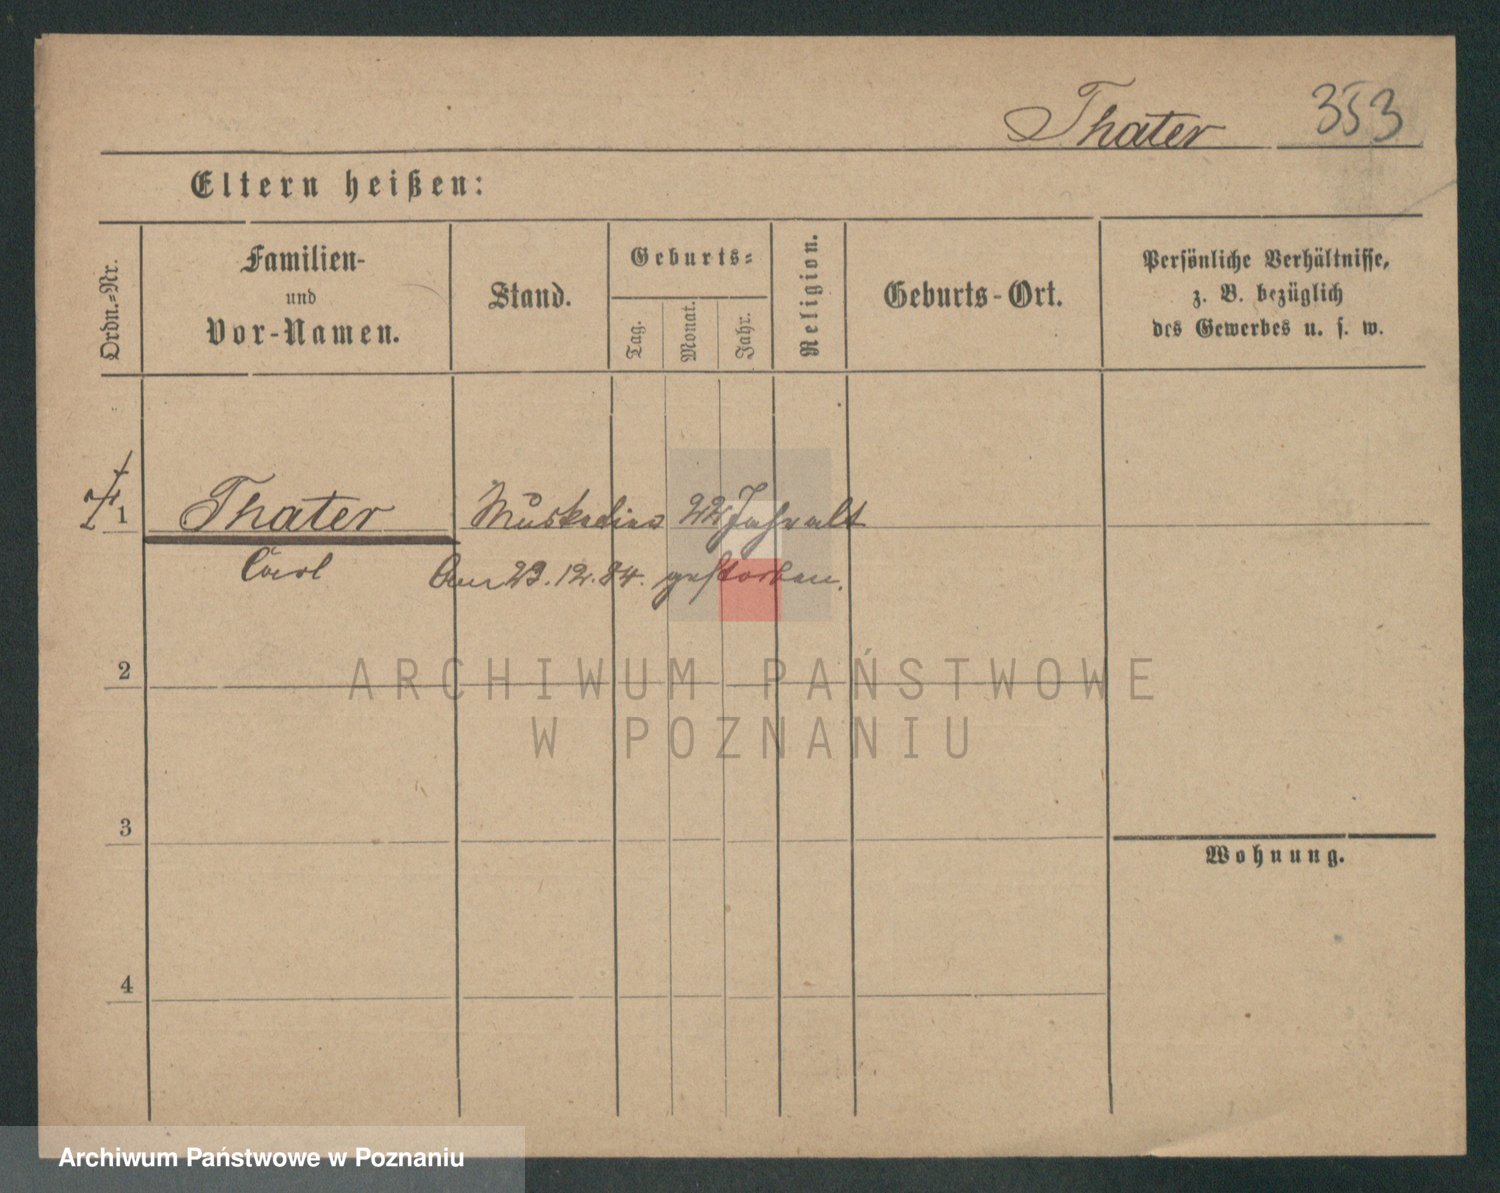 Thater 353
Eltern heißen:
Ordn.-Nr.
Familien-
und
Vor-Namen.
Stand.
Geburts-
Tag.
Monat.
Jahr.
Religion.
Geburts-Ort.
Persönliche Verhältnisse,
z. B. bezüglich
des Gewerbes u. s. w.
1 Thater Musketier 22 Jahr alt
Carl Am 23.12.84. gestorben.
2
ARCHIWUM PAŃSTWOWE
W POZNANIU
3
Wohnung.
4
Archiwum Państwowe w Poznaniu